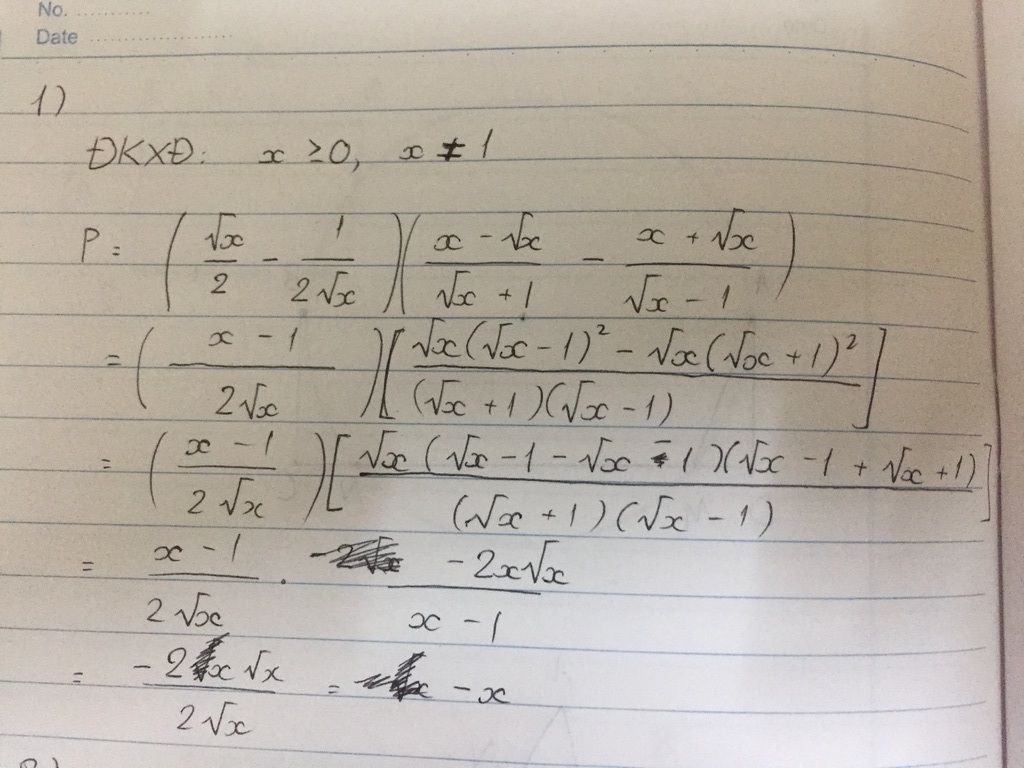 No. ............
Date ........................
1)
ĐKXĐ: x ≥ 0, x ≠ 1
P = (√x/2 - 1/(2√x))((x - √x)/(√x + 1) - (x + √x)/(√x - 1))
= ((x - 1)/(2√x))[(√x(√x - 1)² - √x(√x + 1)²)/((√x + 1)(√x - 1))]
= ((x - 1)/(2√x))[(√x(√x - 1 - √x - 1)(√x - 1 + √x + 1))/((√x + 1)(√x - 1))]
= (x - 1)/(2√x) . (-2x√x)/(x - 1)
= (-2x√x)/(2√x) = -x